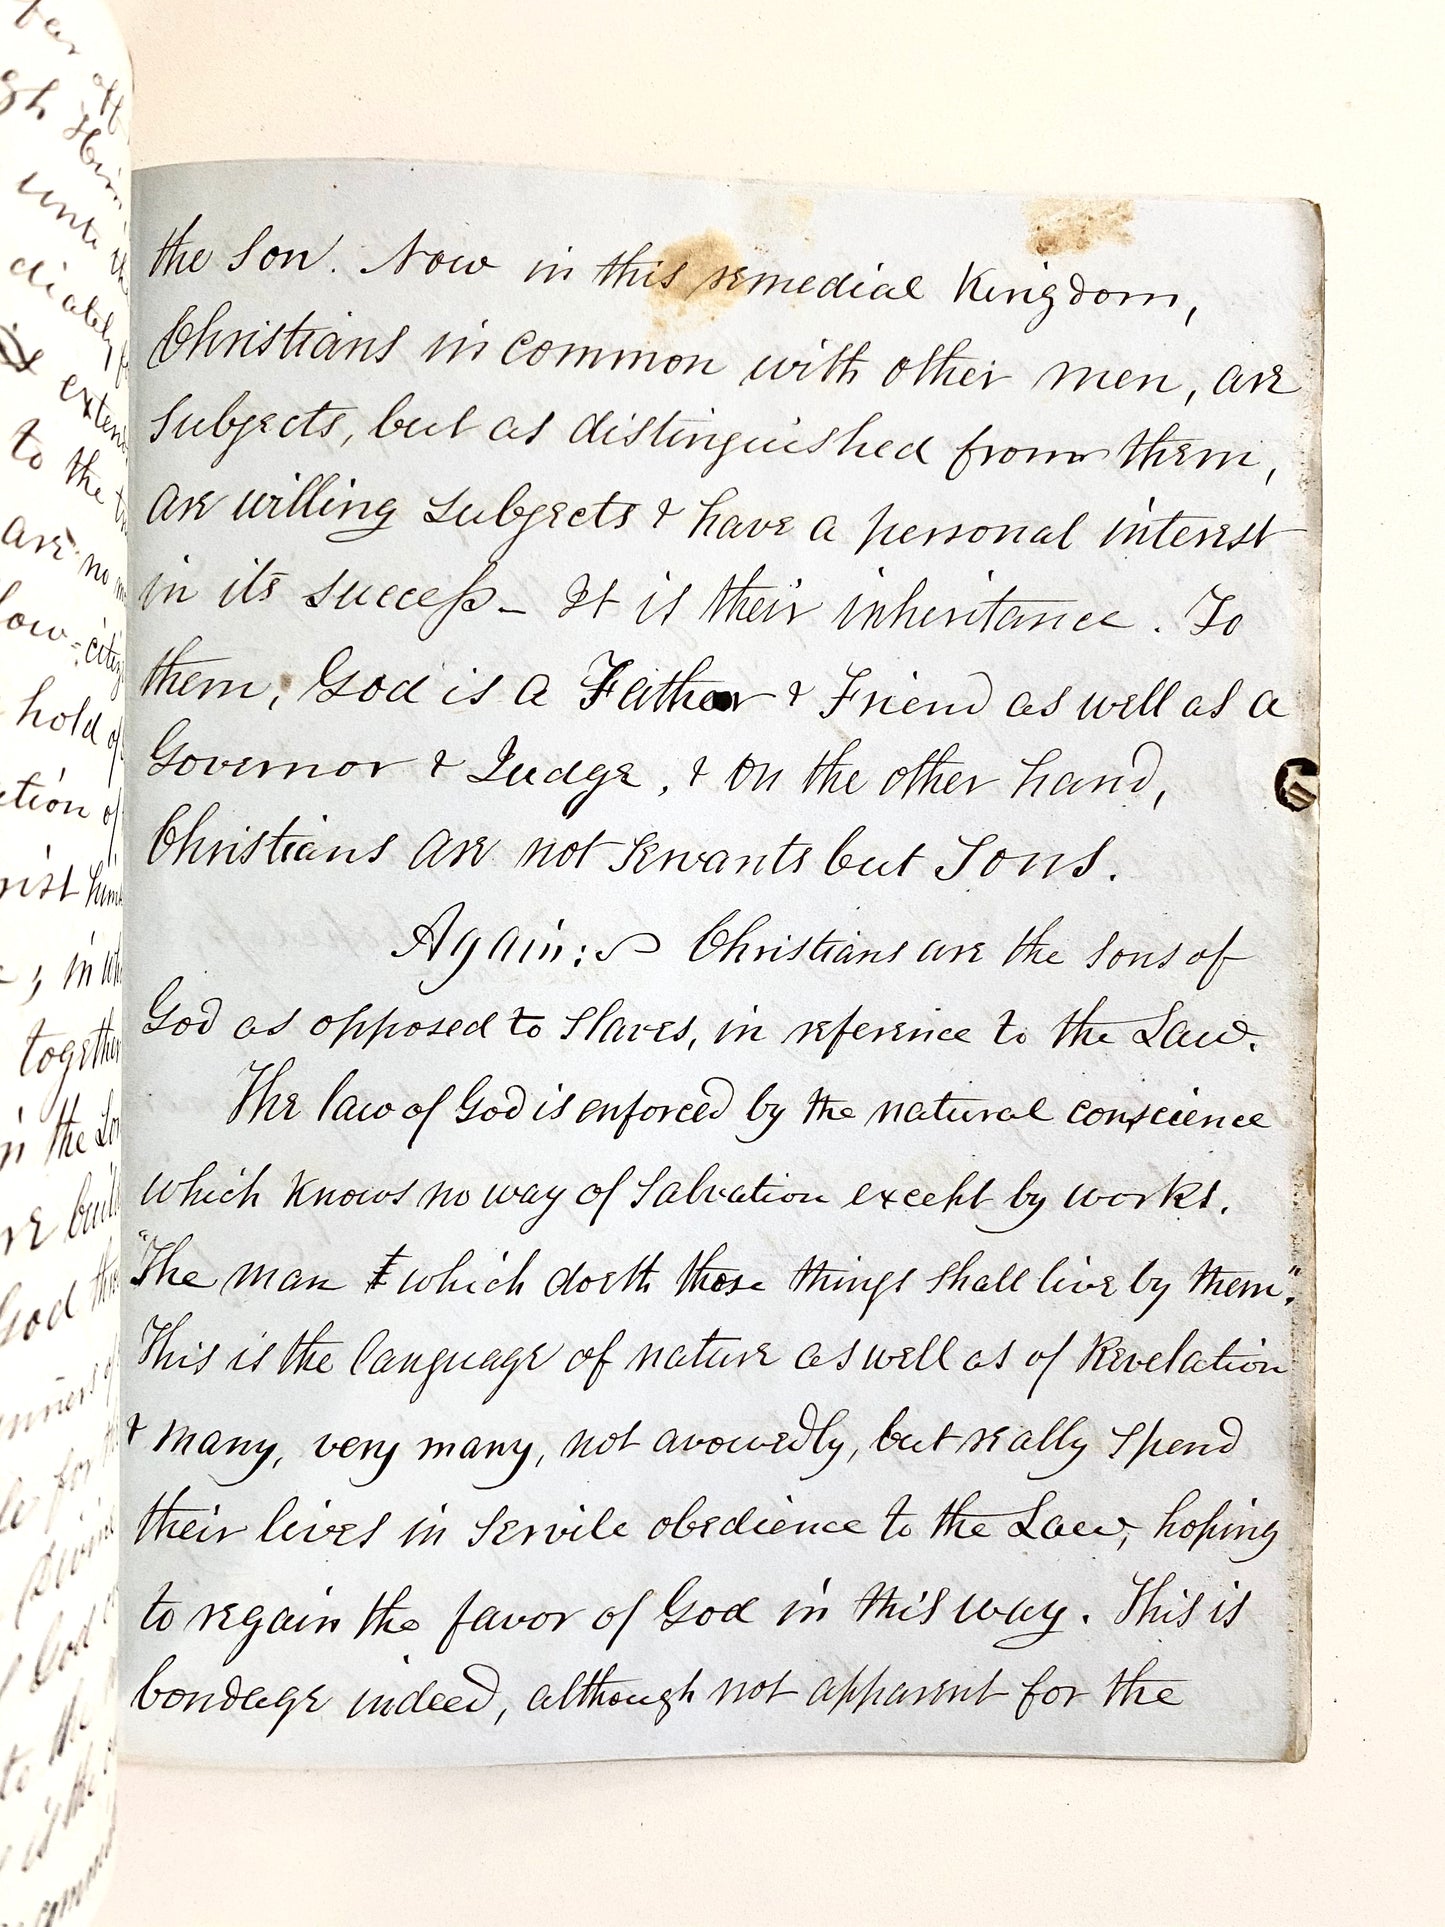 the Son. Now in this remedial Kingdom,
Christians in common with other men, are
subjects, but as distinguished from them,
are willing subjects & have a personal interest
in its success – It is their inheritance. To
them, God is a Father & Friend as well as a
Governor & Judge, & on the other hand,
Christians are not servants but sons.
Again: Christians are the sons of
God as opposed to slaves, in reference to the Law.
The law of God is enforced by the natural conscience
which knows no way of salvation except by works.
"The man which doeth those things shall live by them".
This is the language of nature as well as of Revelation
& many, very many, not avowedly, but really spend
their lives in servile obedience to the Law, hoping
to regain the favor of God in this way. This is
bondage indeed, although not apparent for the